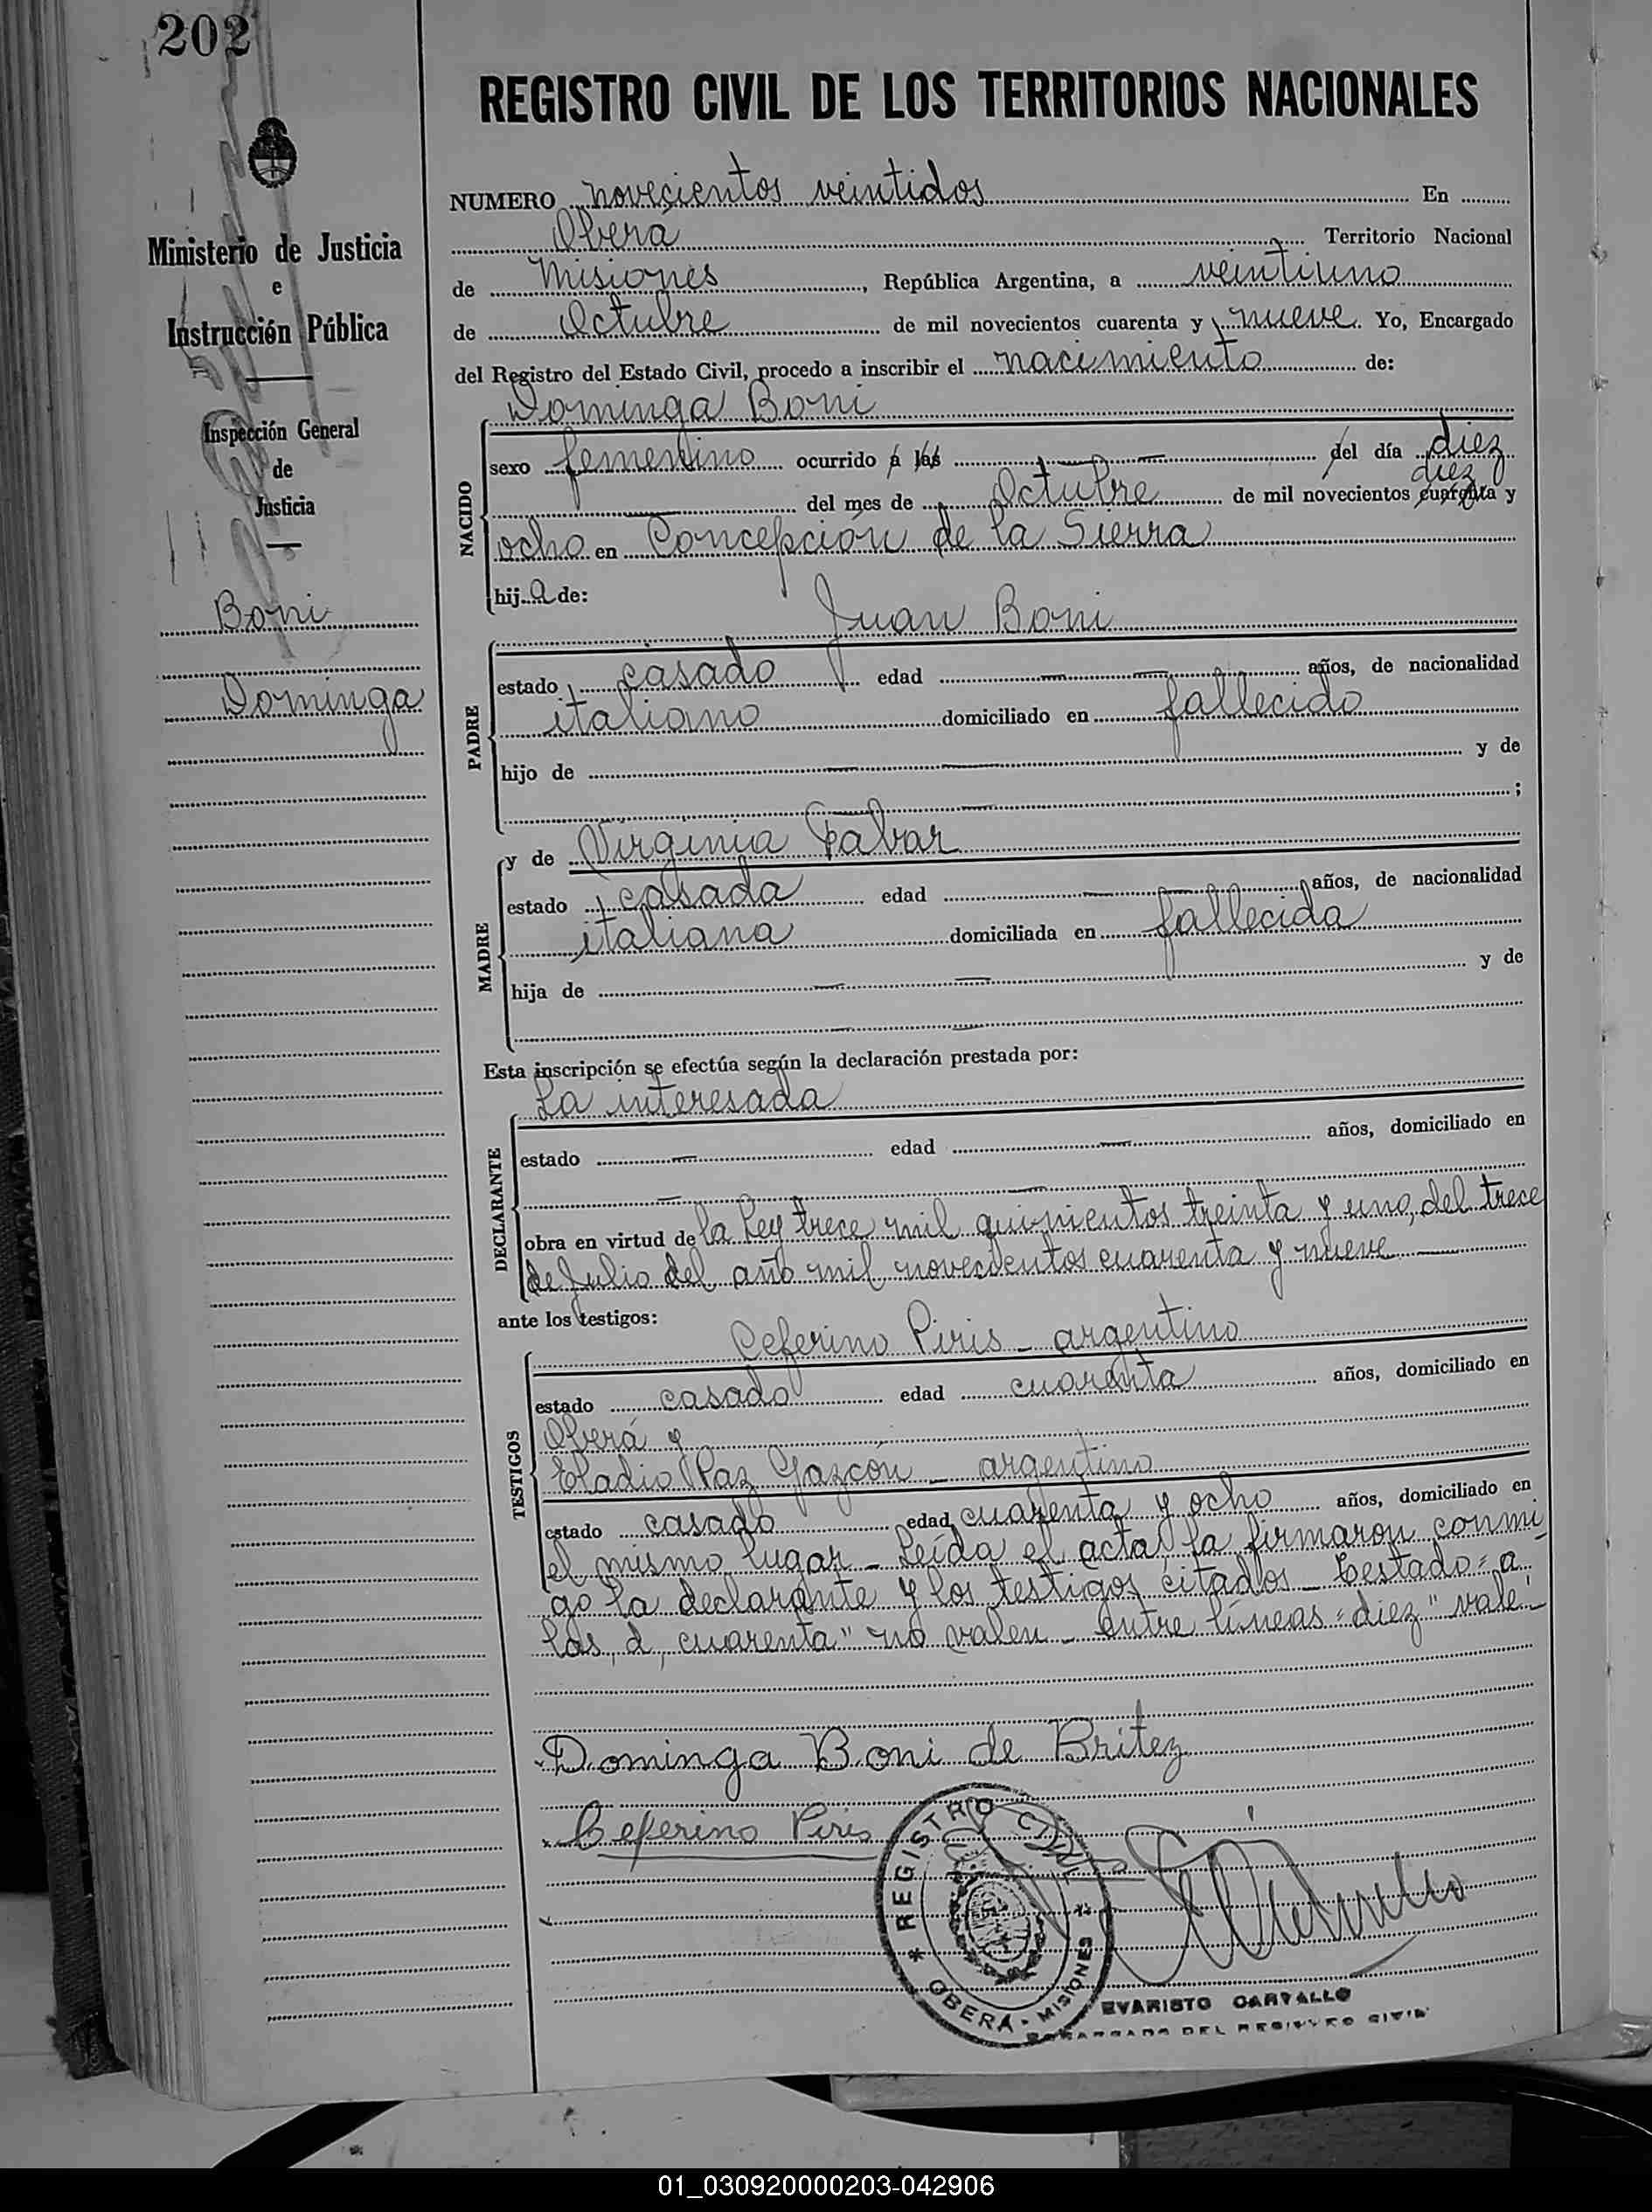 202
REGISTRO CIVIL DE LOS TERRITORIOS NACIONALES
Ministerio de Justicia
e
Instrucción Pública
Inspección General
de
Justicia
Boni
Dominga
NUMERO novecientos veintidos En
Oberá Territorio Nacional
de Misiones, República Argentina, a veintiuno
de Octubre de mil novecientos cuarenta y nueve. Yo, Encargado
del Registro del Estado Civil, procedo a inscribir el nacimiento de:
Dominga Boni
NACIDO
sexo femenino ocurrido á las — del día diez
diez
— del mes de Octubre de mil novecientos cuarenta y
ocho en Concepción de la Sierra
hija de:
Juan Boni
PADRE
estado casado edad — años, de nacionalidad
italiano domiciliado en fallecido
hijo de — — y de
— ;
y de Virginia Fabar
MADRE
estado casada edad — años, de nacionalidad
italiana domiciliada en fallecida
hija de — — y de
— —
Esta inscripción se efectúa según la declaración prestada por:
La interesada
DECLARANTE
estado — edad — años, domiciliado en
— —
obra en virtud de la Ley trece mil quinientos treinta y uno, del trece
de Julio del año mil novecientos cuarenta y nueve —
ante los testigos:
Ceferino Piris - argentino
TESTIGOS
estado casado edad cuarenta años, domiciliado en
Oberá y
Eladio Paz Gazcón - argentino
estado casado edad cuarenta y ocho años, domiciliado en
el mismo lugar - Leída el acta, la firmaron conmi-
go la declarante y los testigos citados - Testado = a
las, d, cuarenta" no valen - Entre líneas = diez" vale.-
Dominga Boni de Britez
Ceferino Piris
* REGISTRO CIVIL *
OBERÁ - MISIONES
EVARISTO CARVALLO
ENCARGADO DEL REGISTRO CIVIL
01_030920000203-042906